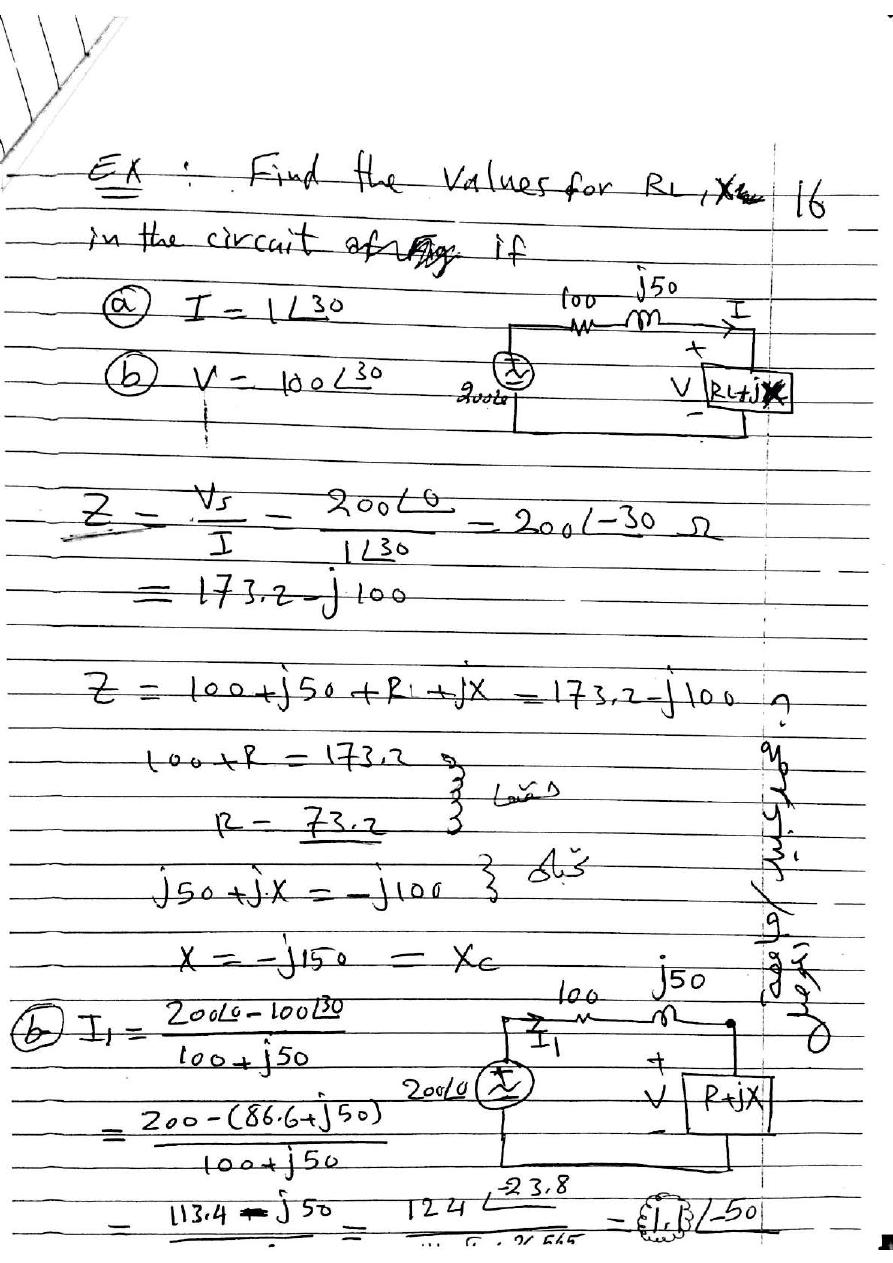 EX : Find the Values for RL, X 16
in the circuit if
(a) I = 1∠30
(b) V = 100∠30
100 j50 I
200∠0 + V - RL+jX
Z = Vs/I = 200∠0/1∠30 = 200∠-30 Ω
= 173.2 - j100
Z = 100 + j50 + RL + jX = 173.2 - j100
100 + R = 173.2
R = 73.2
j50 + jX = -j100
X = -j150 = Xc
(b) I1 = 200∠0 - 100∠30 / 100 + j50
100 j50
I1
200∠0 + V - R+jX
= 200 - (86.6 + j50) / 100 + j50
= 113.4 - j50 = 124∠-23.8 = 1.1∠-50